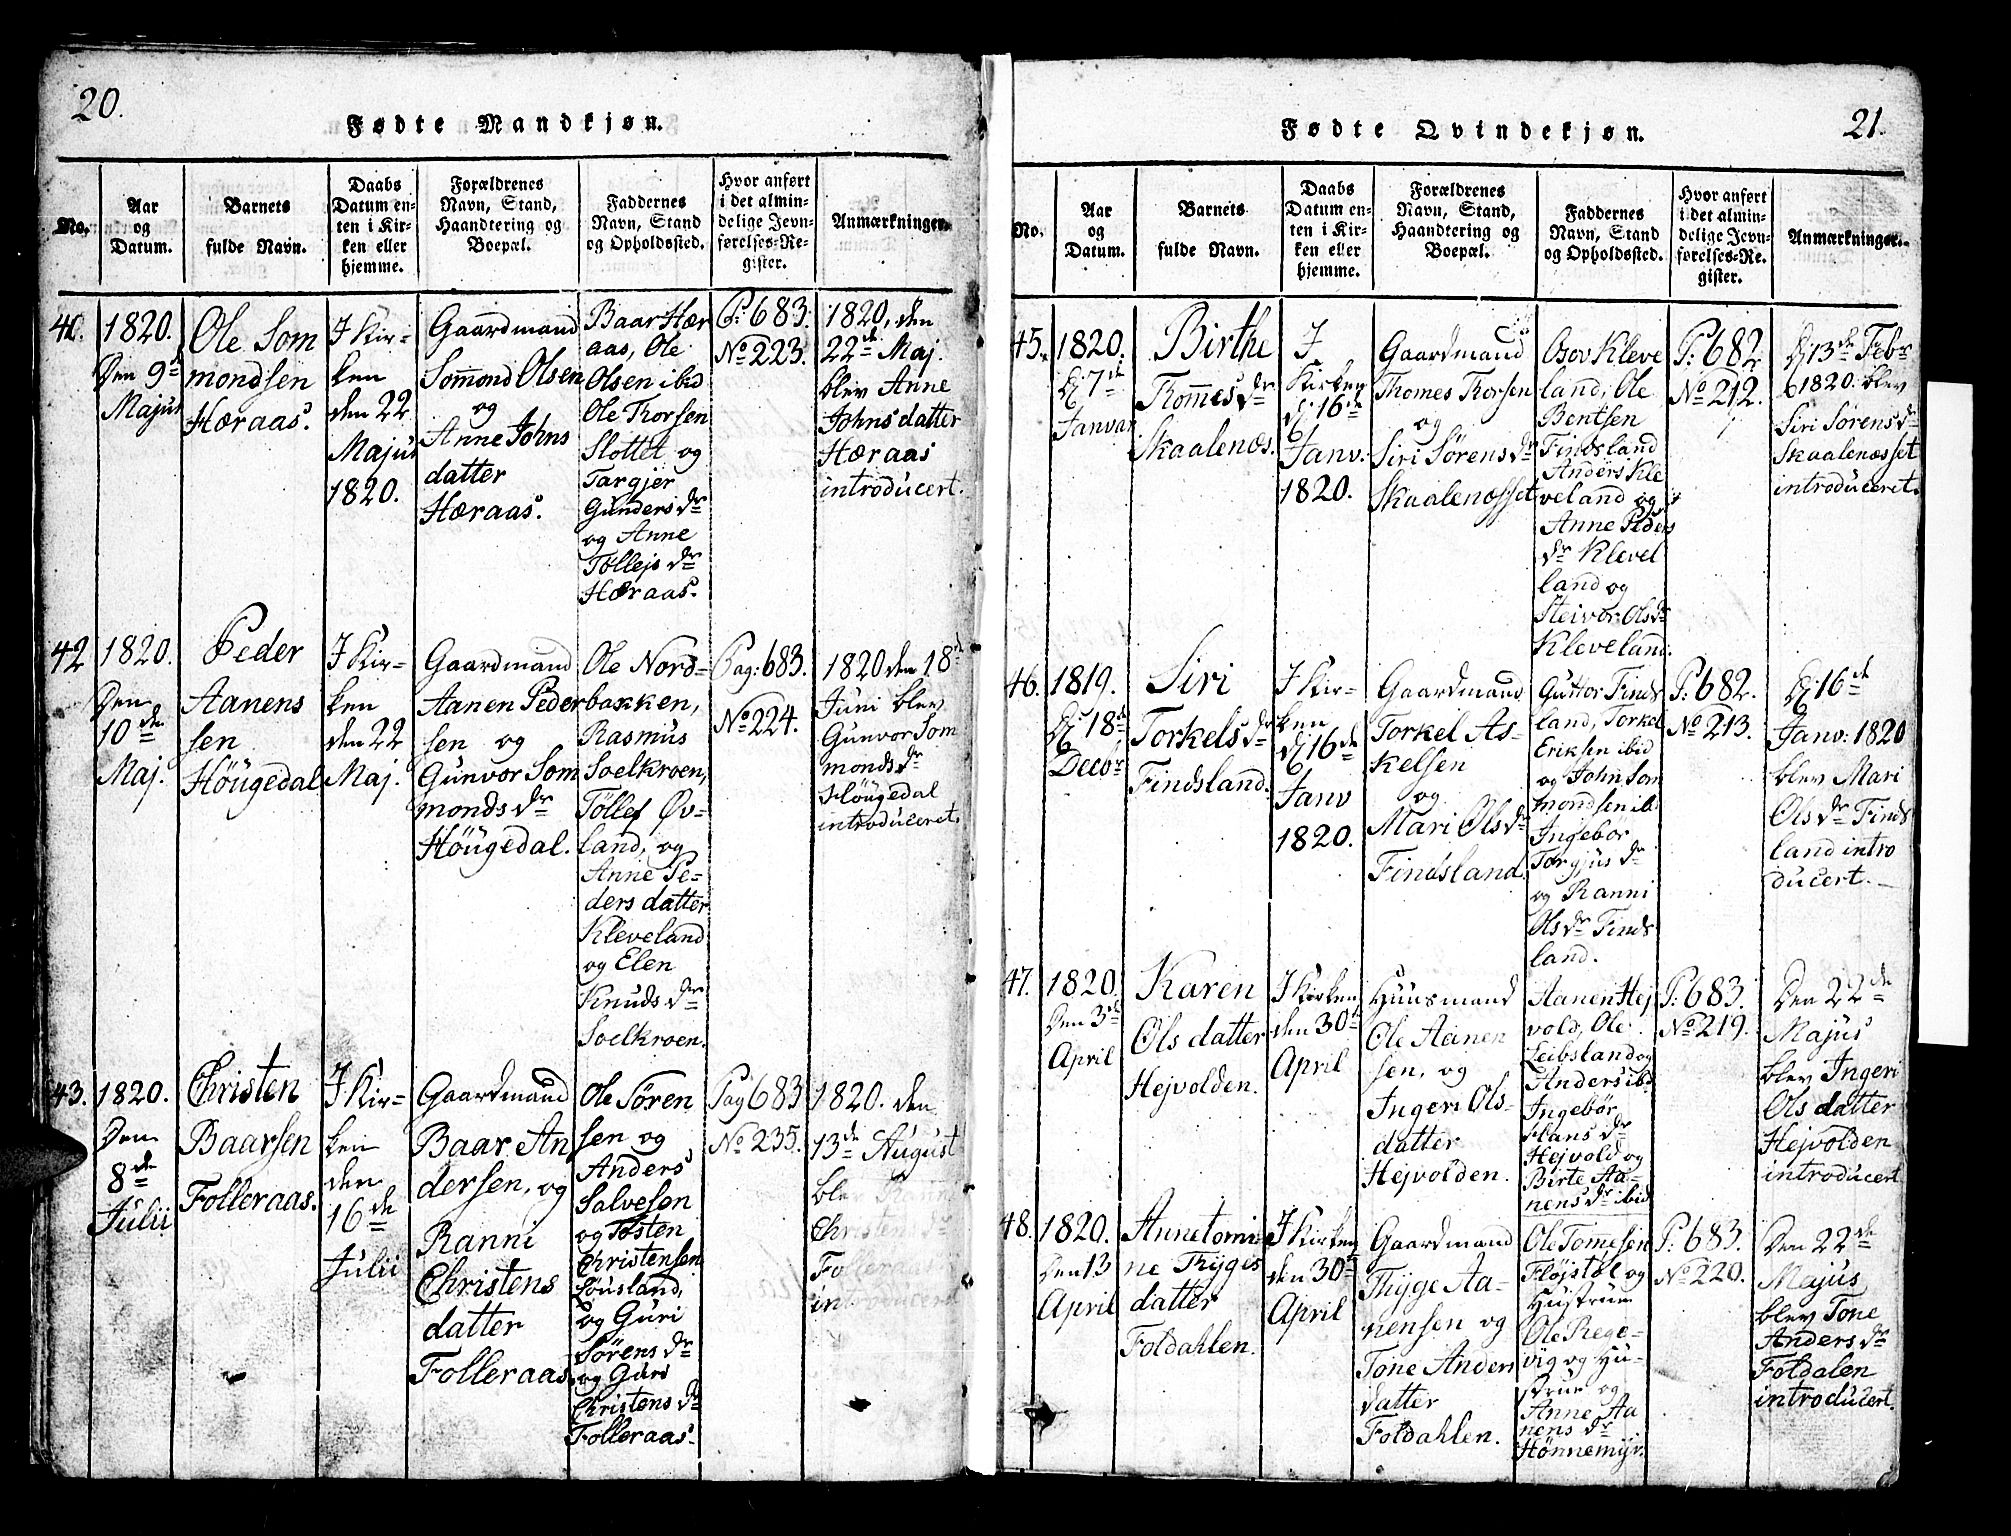 20.
Fødte Mandkjøn.
No.
Aar
og
Datum.
Barnets
fulde Navn.
Daabs
Datum en-
ten i Kir-
ken eller
hjemme.
Forældrenes
Navn, Stand,
Haandtering og
Boepæl.
Faddernes
Navn, Stand
og Opholdssted.
Hvor anført
i det almin-
delige Jevn-
førelses-Re-
gister.
Anmærkninger.
40.
1820.
Den 9de
Majus
Ole Som
mondsen
Hæraas.
I Kir-
ken
den 22
Majus
1820.
Gaardmand
Sommond Olsen
og
Anne Johns
datter
Hæraas.
Baar Hær
aas, Ole
Olsen ibid
Ole Thorsen
Slottet og
Targjer
Gunders dr
og Anne
Tollejs dr
Hæraas.
P: 683.
No 223.
1820, den
22de Maj
blev Anne
Johns datter
Hæraas
introducert.
42
1820.
Den
10de
Maj.
Peder
Aanens
sen
Höugedal
I Kir-
ken
den 22
Maj.
Gaardmand
Aanen Peder
sen og
Gunvor Som
monds dr
Höugedal.
Ole Nord-
bakken,
Rasmus
Soelkroen,
Töllef Øv-
land, og
Anne Pe-
ders datter
Kleveland
og Elen
Knuds dr
Soelkroen.
Pag: 683.
No 224.
1820 den 18de
Juni blev
Gunvor Som
monds dr
Höugedal
introduceret.
43.
1820.
Den
8de
Julii
Christen
Baarsen
Folleraas.
I Kir-
ken
den
16de
Julii
Gaardmand
Baar An
dersen, og
Ranni
Christens
datter
Folleraas
Ole Sören
sen og
Anders
Salvesen
og Tosten
Christensen
Lousland,
og Guri
Sørens dr
og Guri
Christens dr
Folleraas.
Pag 683
No 235.
1820. den
13de August
blev
Christens dr
Folleraas
introducert
21.
Fødte Qvindekjøn.
No.
Aar
og
Datum.
Barnets
fulde Navn.
Daabs
Datum en-
ten i Kir-
ken eller
hjemme.
Forældrenes
Navn, Stand,
Haandtering og
Boepæl.
Faddernes
Navn, Stand
og Opholdssted.
Hvor anført
i det almin-
delige Jevn-
førelses-Re-
gister.
Anmærkninger.
45.
1820.
D: 7de
Januar
Birthe
Thommes dr
Skaalenæs.
I
Kirken
D: 16de
Janv.
1820.
Gaardmand
Thomes Thorsen
og
Siri Sörens dr
Skaalenæsset
Osov Kleve
land, Ole
Bentsen
Findsland
Anders Kle
veland og
Anne Peders
dr Klevel
land og
Steivor Ols dr
Kleveland.
P: 682
No 212.
D: 13de Febr
1820. blev
Siri Sørens dr
Skaalenæsset
introduceret.
46.
1819.
D: 18de
Decbr
Siri
Torkels dr
Findsland.
I Kir-
ken
D: 16de
Janv
1820.
Gaardmand
Torkel As-
kelsen
og
Mari Ols dr
Findsland.
Guttor Finds
land, Torkel
Eriksen ibid
og John Som
mondsen ibd
Ingebör
Torgjus dr
og Ranni
Ols dr Finds
land.
P: 682.
No 213.
D: 16de
Janv: 1820
blev Mari
Ols dr Finds
land intro
ducert.
47.
1820.
Den 3de
April
Karen
Ols datter
Hejvolden.
I Kirken
den 30te
April
Huusmand
Ole Aanen
sen, og
Ingeri Ols-
datter
Hejvolden.
Aanen Hej
vold, Ole
Leibsland og
Anders ibd
Ingebör
Hans dr
Hejvold og
Birte Aa-
nens dr ibid
P: 683.
No 219.
Den 22de
Majus
blev Ingeri
Ols datter
Hejvolden
introducert
48.
1820.
Den 13
April
Annetomi-
ne Thyges
datter
Foldahlen.
I Kirken
den 30te
April
Gaardmand
Thyge Aa-
nensen og
Tone Anders
datter
Foldahlen.
Ole Tomesen
Fløjstøl og
Hustrue
Ole Rege-
vig og Hu-
strue og
Anne Aa
nens dr
Hønnemyr.
P: 683.
No 220.
Den 22de
Majus
blev Tone
Anders dr
Foldalen
introducert.